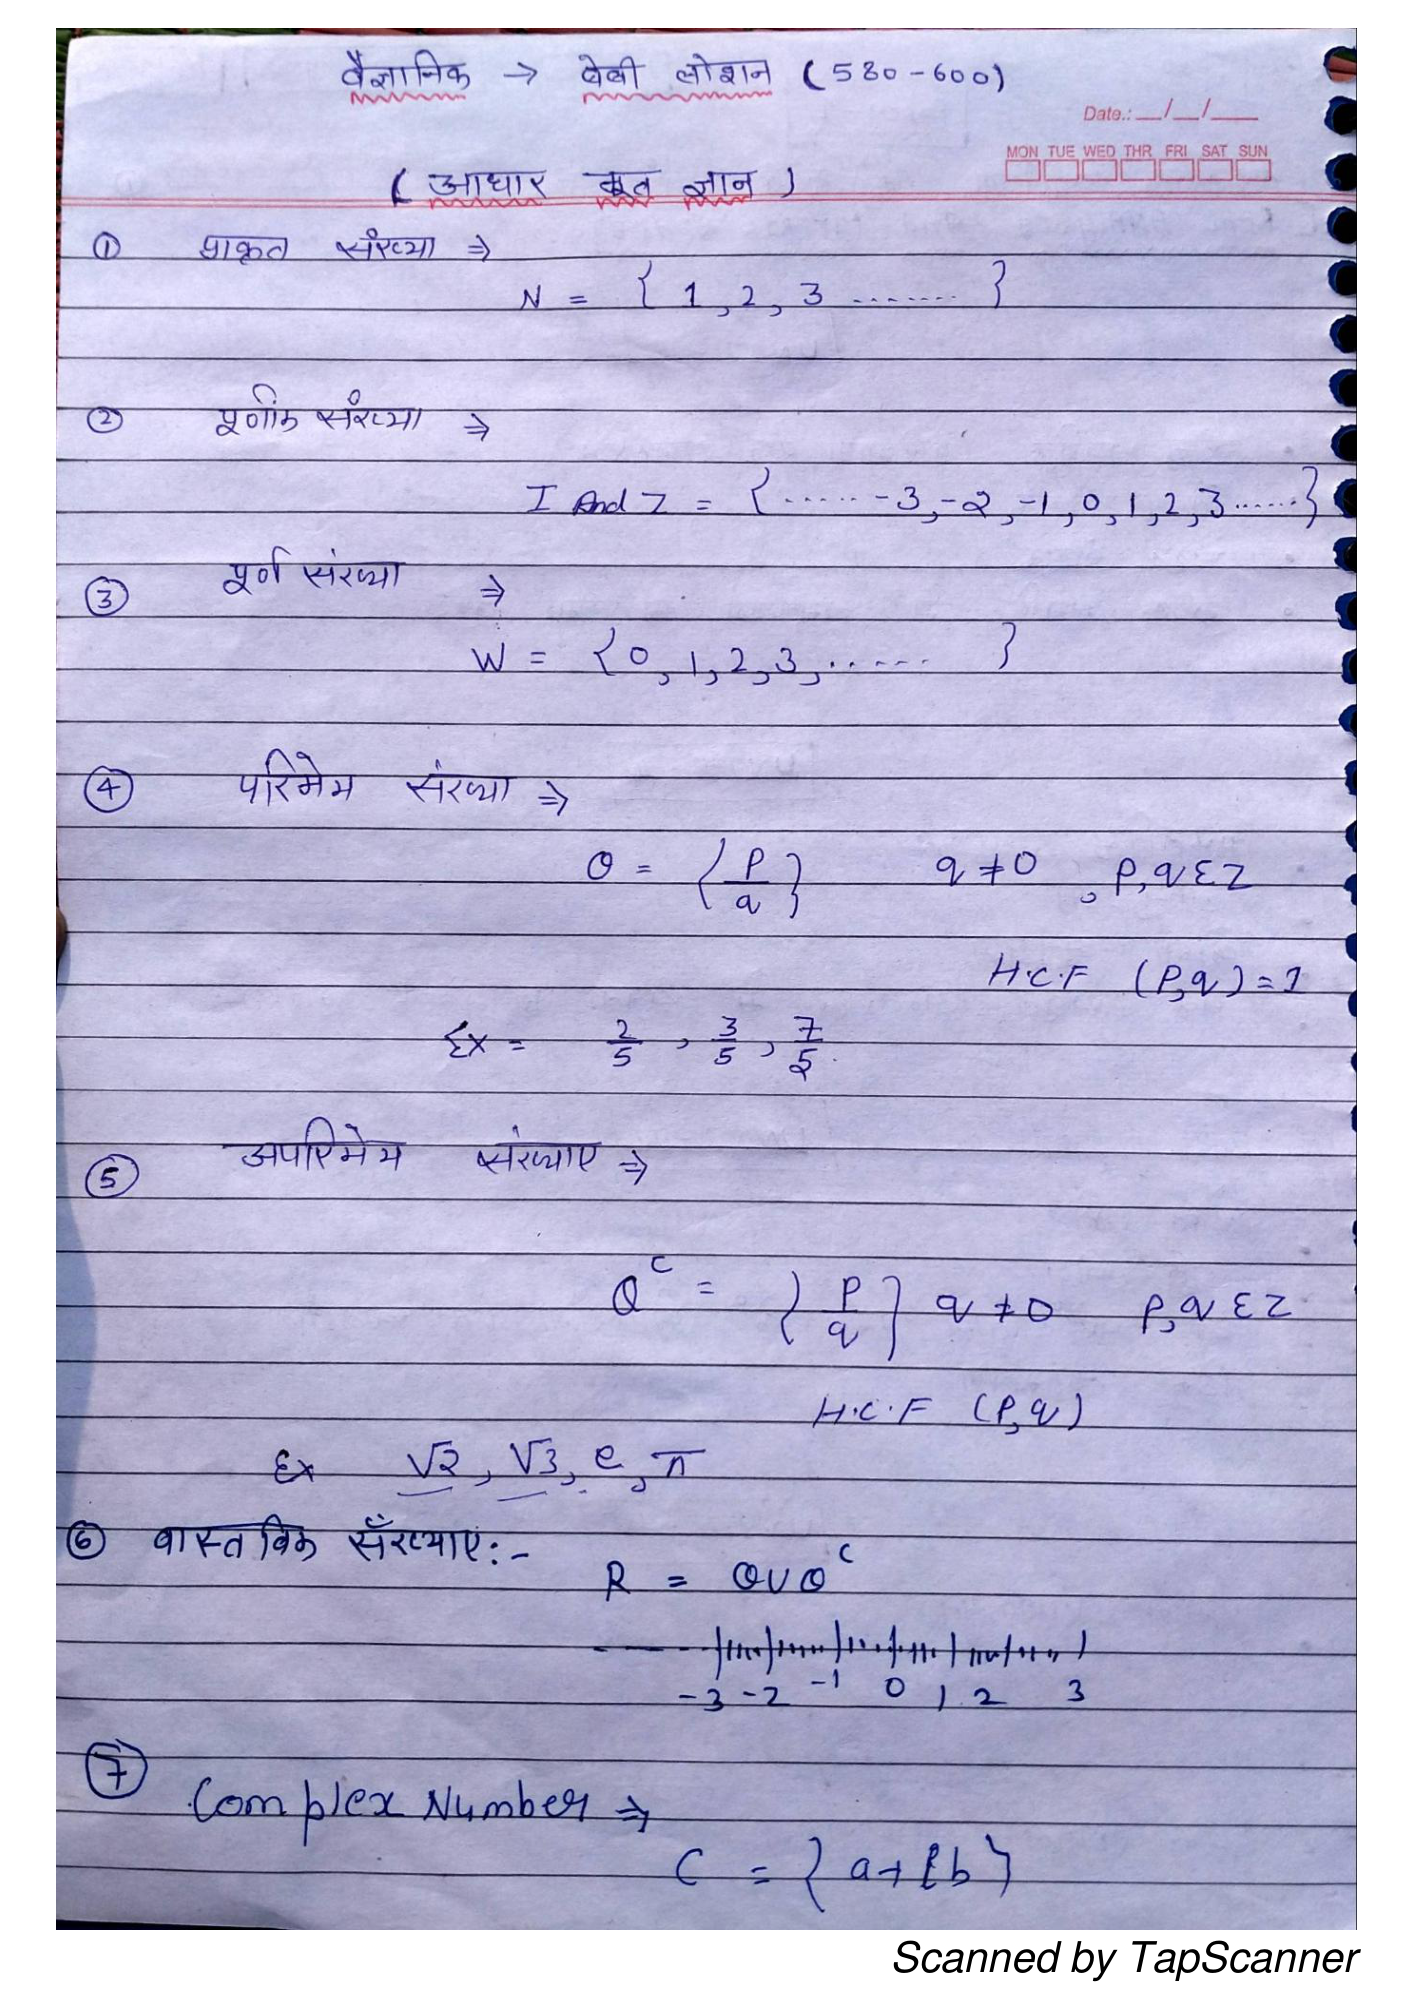 वैज्ञानिक → वेवी लोशन (580-600)
Date.: __/__/___
MON TUE WED THR FRI SAT SUN
( आधार भूत ज्ञान )
① प्राकृत संख्या ⇒
N = { 1, 2, 3 ------- }
② पूर्णांक संख्या ⇒
I And Z = { ...... -3, -2, -1, 0, 1, 2, 3 ...... }
③ पूर्ण संख्या ⇒
W = { 0, 1, 2, 3, ...... }
④ परिमेय संख्या ⇒
Q = { p/q } q ≠ 0 , p, q ε Z
H.C.F (P,q) = 1
Ex = 2/5 , 3/5 , 7/5
⑤ अपरिमेय संख्याए ⇒
Q^c = { p/q } q ≠ 0 p, q ε Z
H.C.F (P,q)
Ex √2, √3, e, π
⑥ वास्तविक संख्याएं :-
R = Q ∪ Q^c
-3 -2 -1 0 1 2 3
⑦ Complex Number ⇒
C = { a + ib }
Scanned by TapScanner